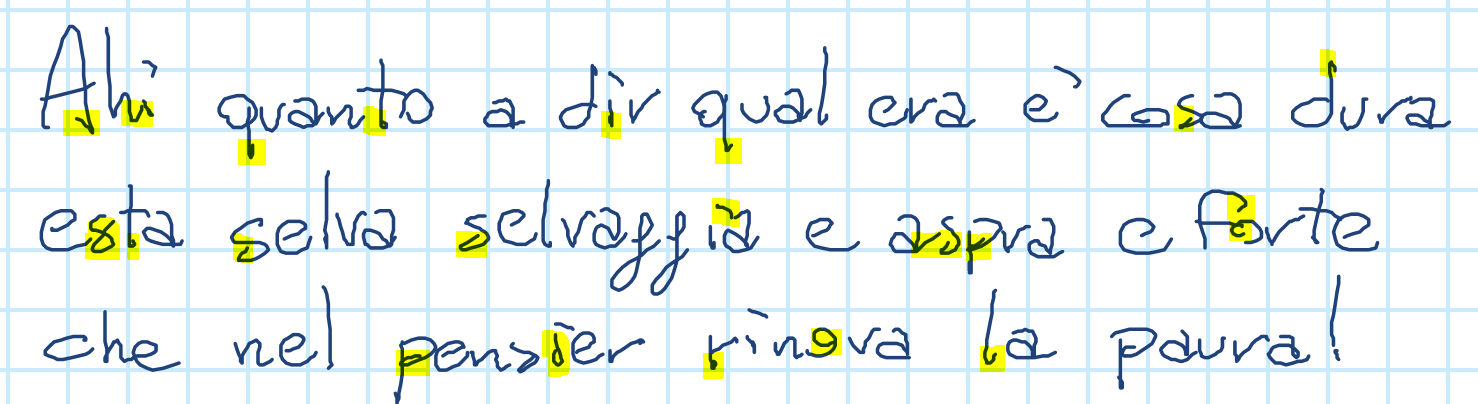 Ahi quanto a dir qual era e` cosa dura
esta selva selvaggia e aspra e forte
che nel pensier rinova la paura!